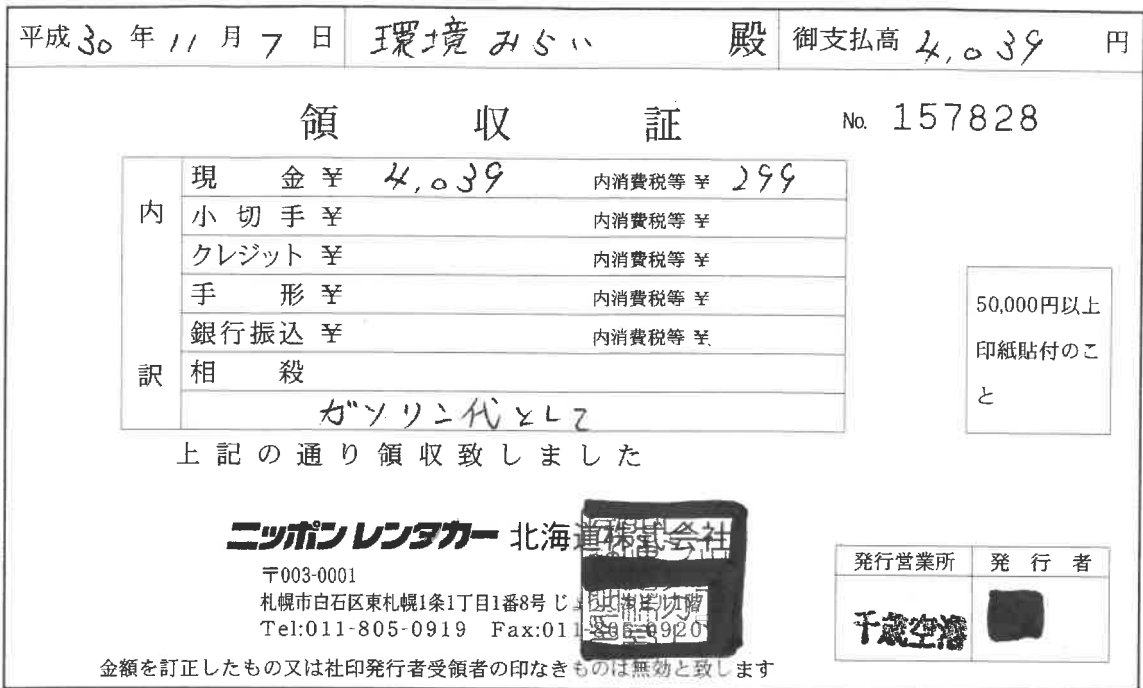 平成30年11月7日 環境みらい 殿 御支払高 4,039 円
領収証 No. 157828
内訳
現金 ¥ 4,039 内消費税等 ¥ 299
小切手 ¥ 内消費税等 ¥
クレジット ¥ 内消費税等 ¥
手形 ¥ 内消費税等 ¥
銀行振込 ¥ 内消費税等 ¥
相殺
ガソリン代として
50,000円以上
印紙貼付のこ
と
上記の通り領収致しました
ニッポンレンタカー北海道株式会社
〒003-0001
札幌市白石区東札幌1条1丁目1番8号
Tel:011-805-0919 Fax:011-805-0920
発行営業所 発行者
千歳空港
金額を訂正したもの又は社印発行者受領者の印なきものは無効と致します